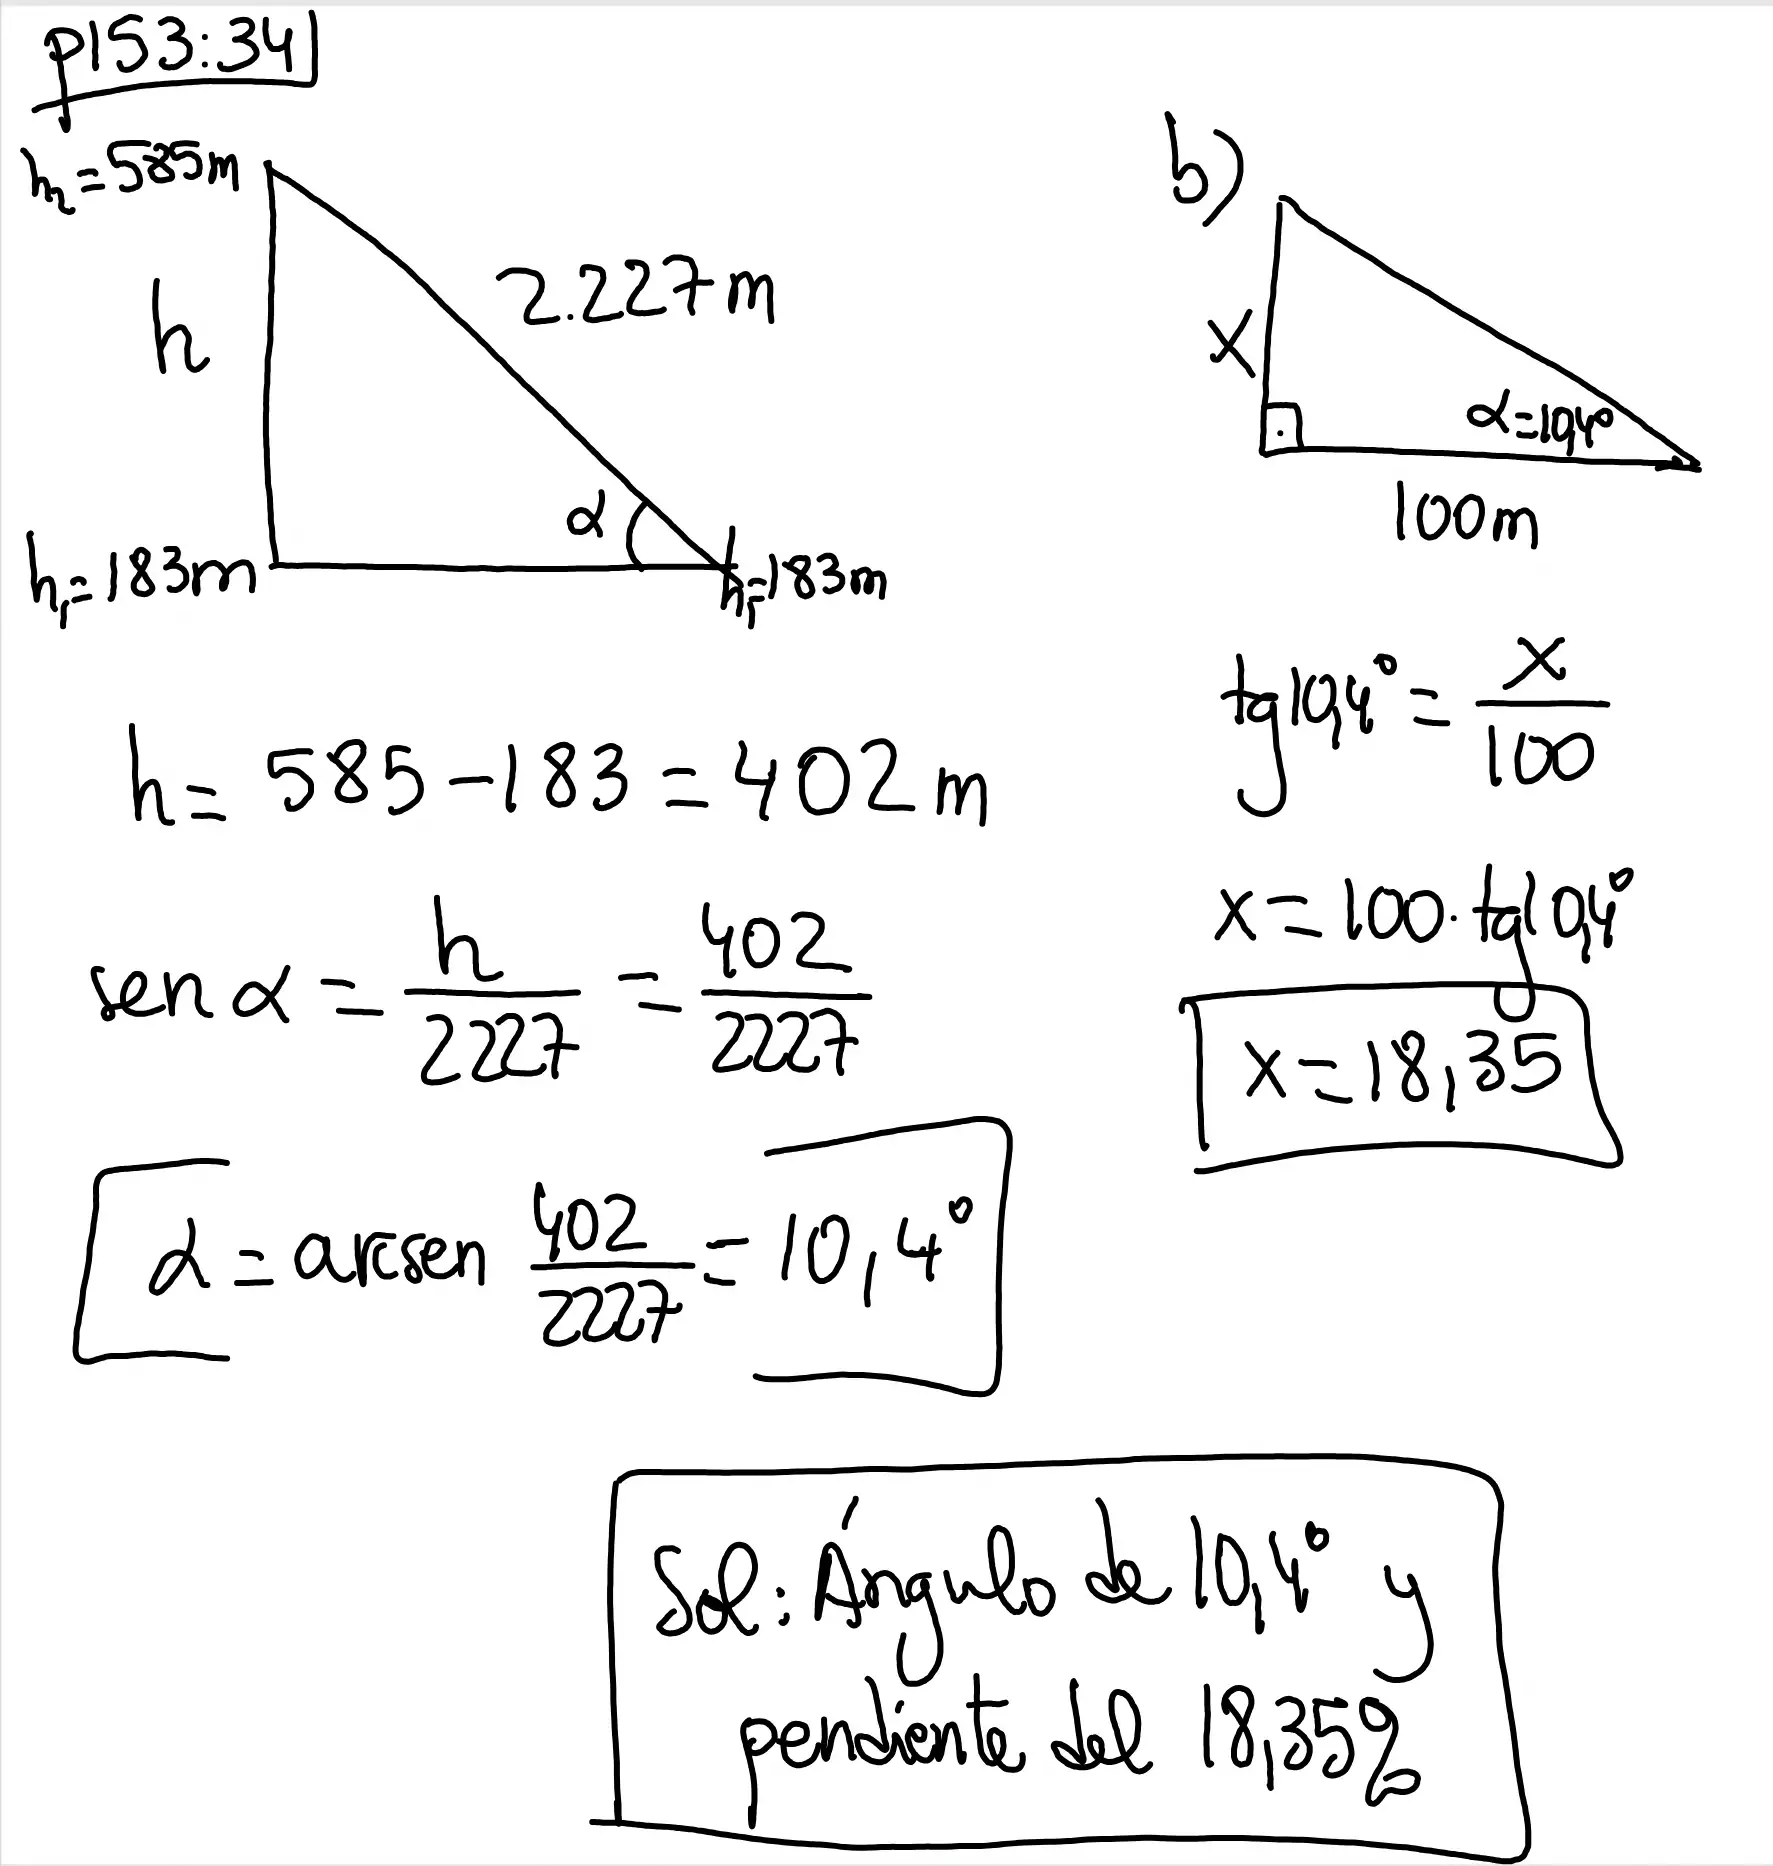 p153:34
h₂=585m
2.227m
h
α
h₁=183m
h₁=183m
h= 585-183=402m
sen α = h/2227 = 402/2227
α = arcsen 402/2227 = 10,4°
b)
x
α=10,4°
100m
tg10,4° = x/100
x=100·tg10,4°
x=18,35
Sol: Ángulo de 10,4° y
pendiente del 18,35%